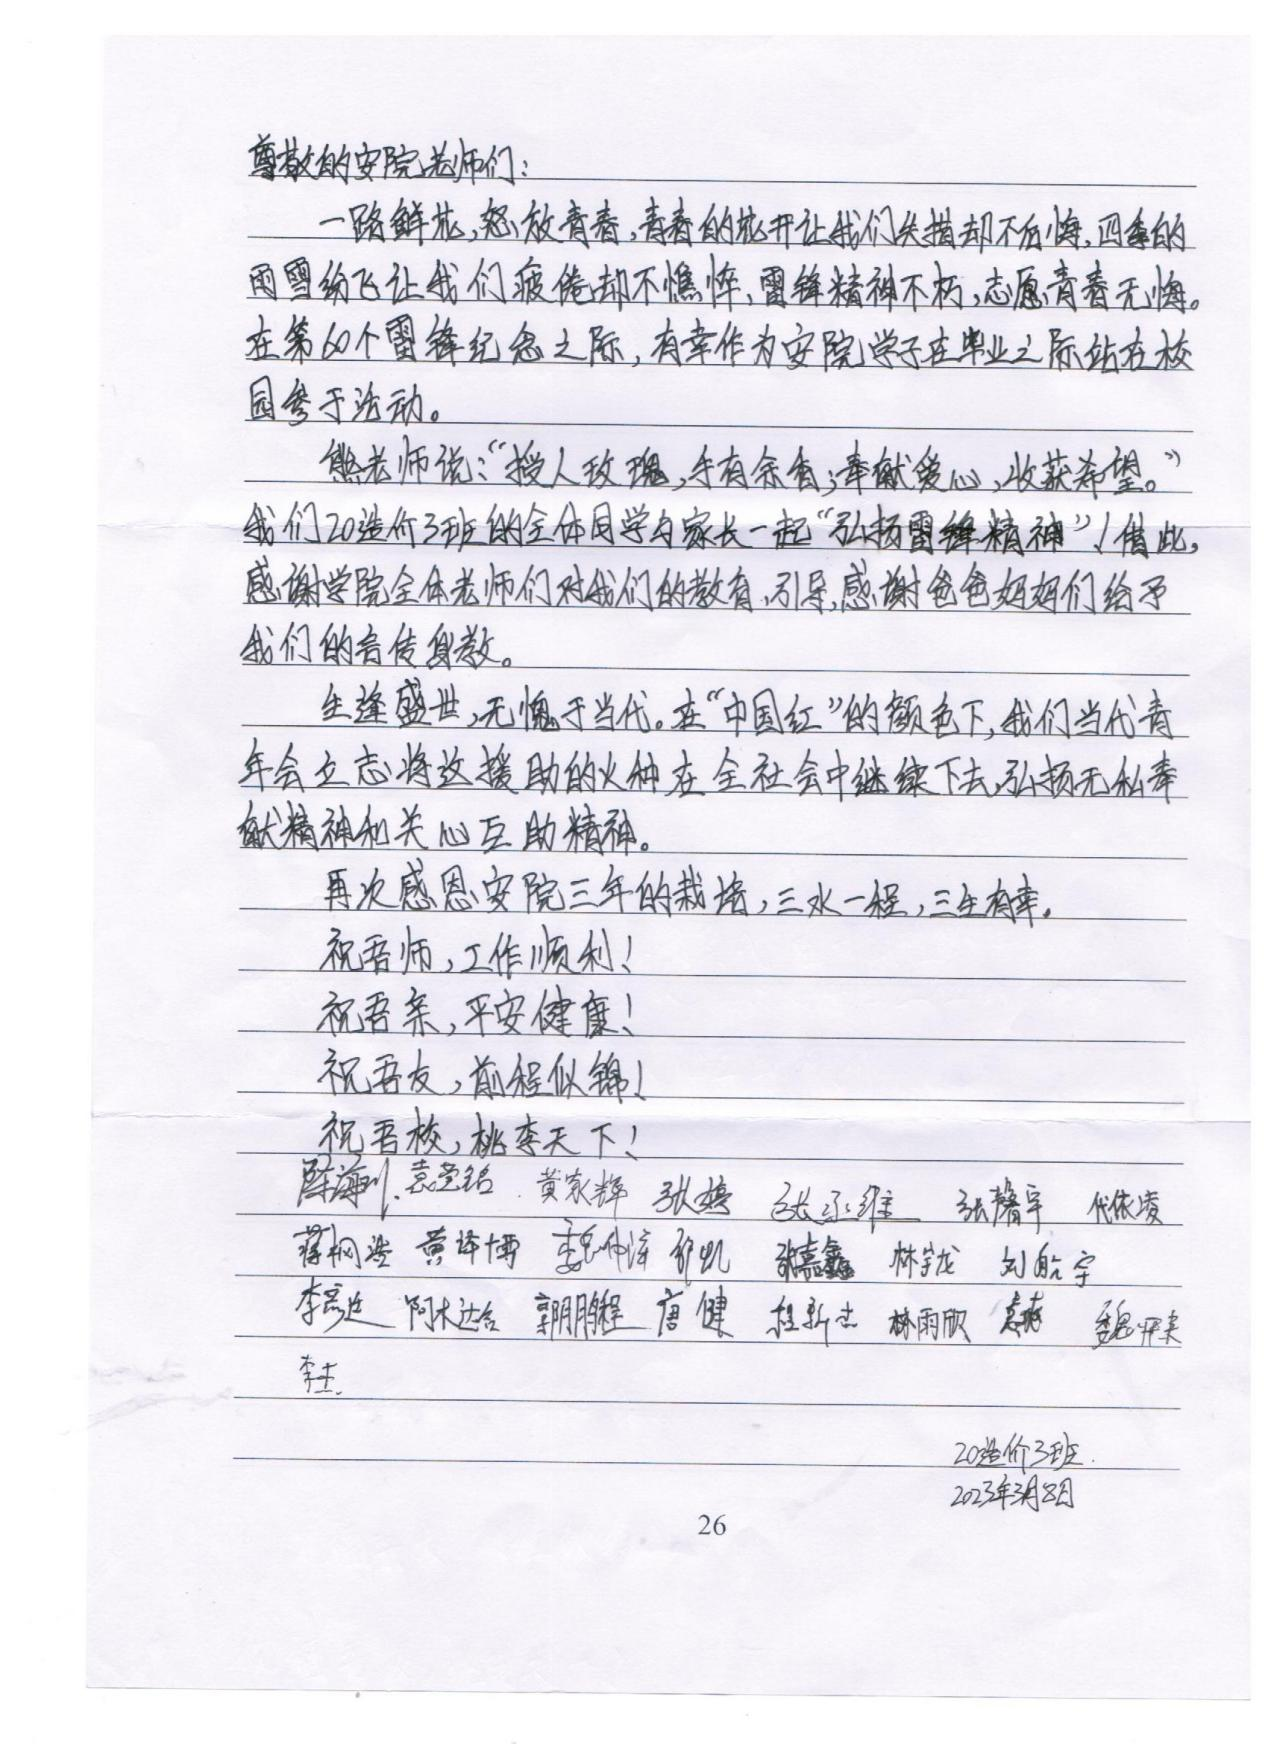 尊敬的安院老师们：
一路鲜花，怒放青春，青春的花开让我们失措却不后悔，四季的
雨雪纷飞让我们疲倦却不憔悴，雷锋精神不朽，志愿青春无悔。
在第60个雷锋纪念之际，有幸作为安院学子在毕业之际站在校
园参于活动。
熊老师说：“授人玫瑰，手有余香；奉献爱心，收获希望。”
我们20造价3班的全体同学与家长一起“弘扬雷锋精神”！借此，
感谢学院全体老师们对我们的教育、引导，感谢爸爸妈妈们给予
我们的言传身教。
生逢盛世，无愧于当代。在“中国红”的颜色下，我们当代青
年会立志将这援助的火种在全社会中继续下去，弘扬无私奉
献精神和关心互助精神。
再次感恩安院三年的栽培，三水一程，三生有幸。
祝吾师，工作顺利！
祝吾亲，平安健康！
祝吾友，前程似锦！
祝吾校，桃李天下！
黄家辉 张婷 张馨宇 代依凌
黄译博 张嘉鑫 林宇龙 刘航宇
阿木达合 郭鹏程 唐健 程新杰 林雨欣
李杰
20造价3班
2023年3月8日
26